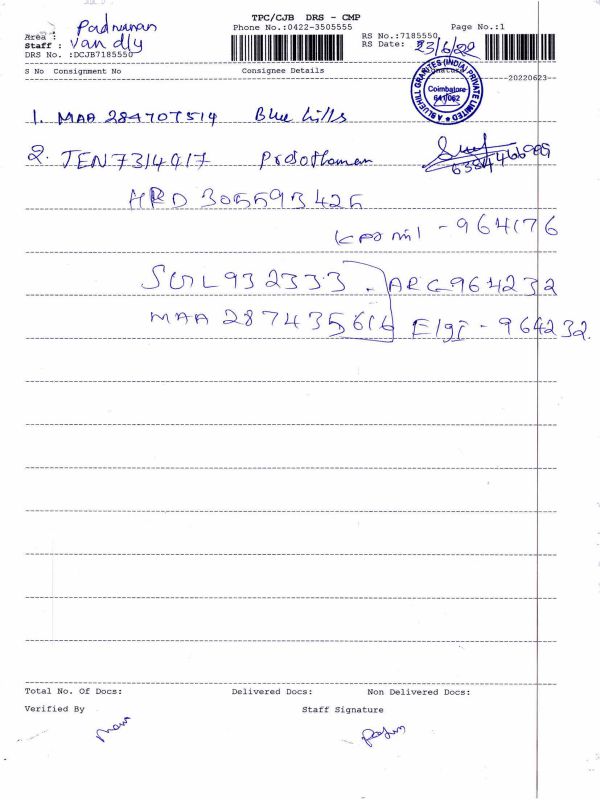 TPC/CJB DRS - CMP
Area : Padmanan
Phone No.:0422-3505555
Page No.:1
Staff : Van dly
RS No.:7185550
DRS No. :DCJB7185550
RS Date: 23/6/22
S No Consignment No Consignee Details Signature
20220623
A BLUEHILL GRANITES (INDIA) PRIVATE LIMITED
Coimbatore
641062
1. MAA 284707514 Blue hills
2. TEN 7314917 Prosothaman
6384466999
HRD 305593425
- 964176
SGL 932333 - ARC 964232
MAA 287435616 Elgi - 964232.
Total No. Of Docs: Delivered Docs: Non Delivered Docs:
Verified By Staff Signature